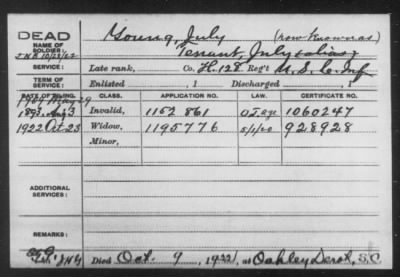 DEAD
Young, July (now known as)
NAME OF SOLDIER:
Tennant, July (alias)
JHH 10/23/22
SERVICE:
Late rank, Co. H. 128 Reg't U. S. C. Inf
TERM OF SERVICE:
Enlisted , 1 Discharged , 1
DATE OF FILING. CLASS. APPLICATION NO. LAW. CERTIFICATE NO.
1907 May 29
1893 Aug 3 Invalid, 1152 861 O J age 1060247
1922 Oct 23 Widow, 1195776 5/1/20 928928
Minor,
ADDITIONAL SERVICES:
REMARKS:
Died Oct. 9, 1922, at Oakley Depot, S.C.